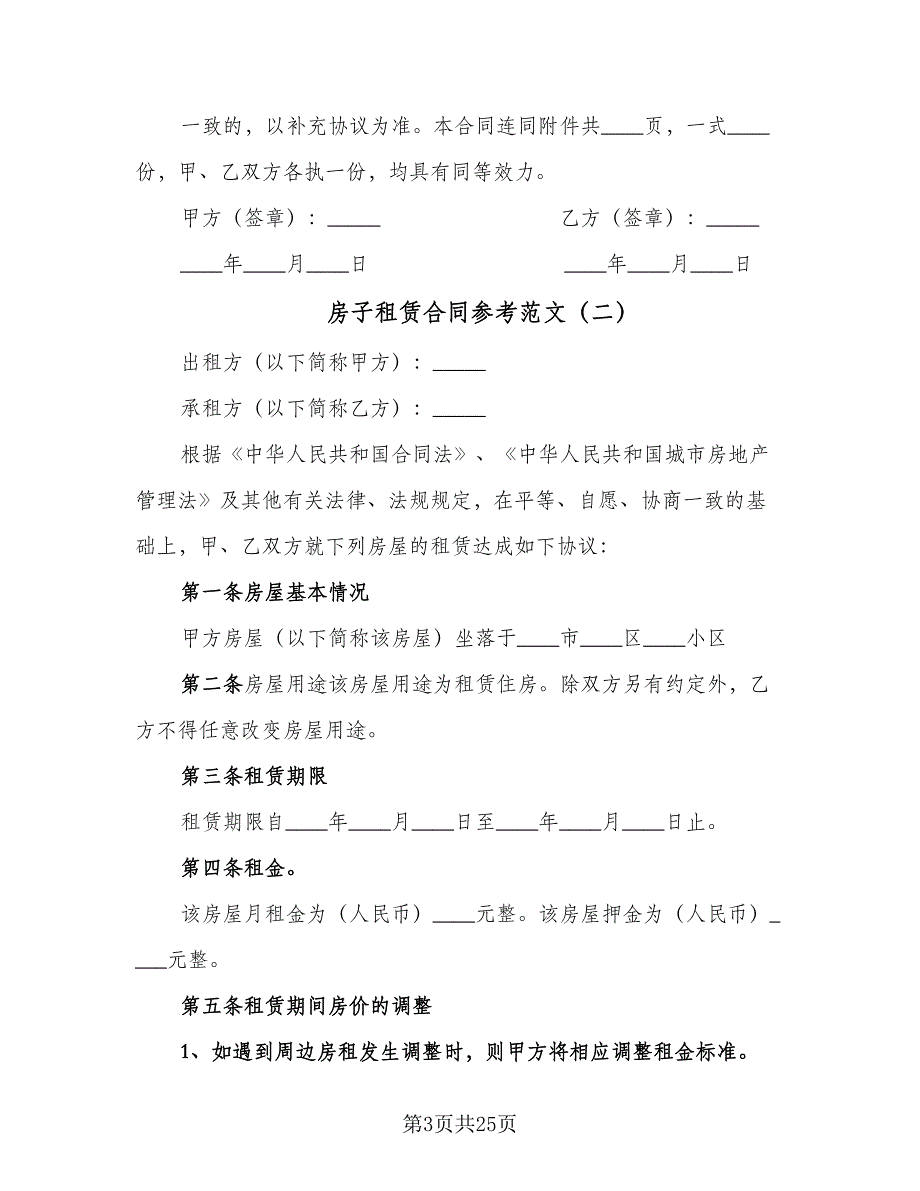 一致的，以补充协议为准。本合同连同附件共____页，一式____
份，甲、乙双方各执一份，均具有同等效力。
甲方（签章）：_____ 乙方（签章）：_____
____年____月____日 ____年____月____日
房子租赁合同参考范文（二）
出租方（以下简称甲方）：_____
承租方（以下简称乙方）：_____
根据《中华人民共和国合同法》、《中华人民共和国城市房地产
管理法》及其他有关法律、法规规定，在平等、自愿、协商一致的基
础上，甲、乙双方就下列房屋的租赁达成如下协议：
第一条房屋基本情况
甲方房屋（以下简称该房屋）坐落于____市____区____小区
第二条房屋用途该房屋用途为租赁住房。除双方另有约定外，乙
方不得任意改变房屋用途。
第三条租赁期限
租赁期限自____年____月____日至____年____月____日止。
第四条租金。
该房屋月租金为（人民币）____元整。该房屋押金为（人民币）_
___元整。
第五条租赁期间房价的调整
1、如遇到周边房租发生调整时，则甲方将相应调整租金标准。
第3页共25页